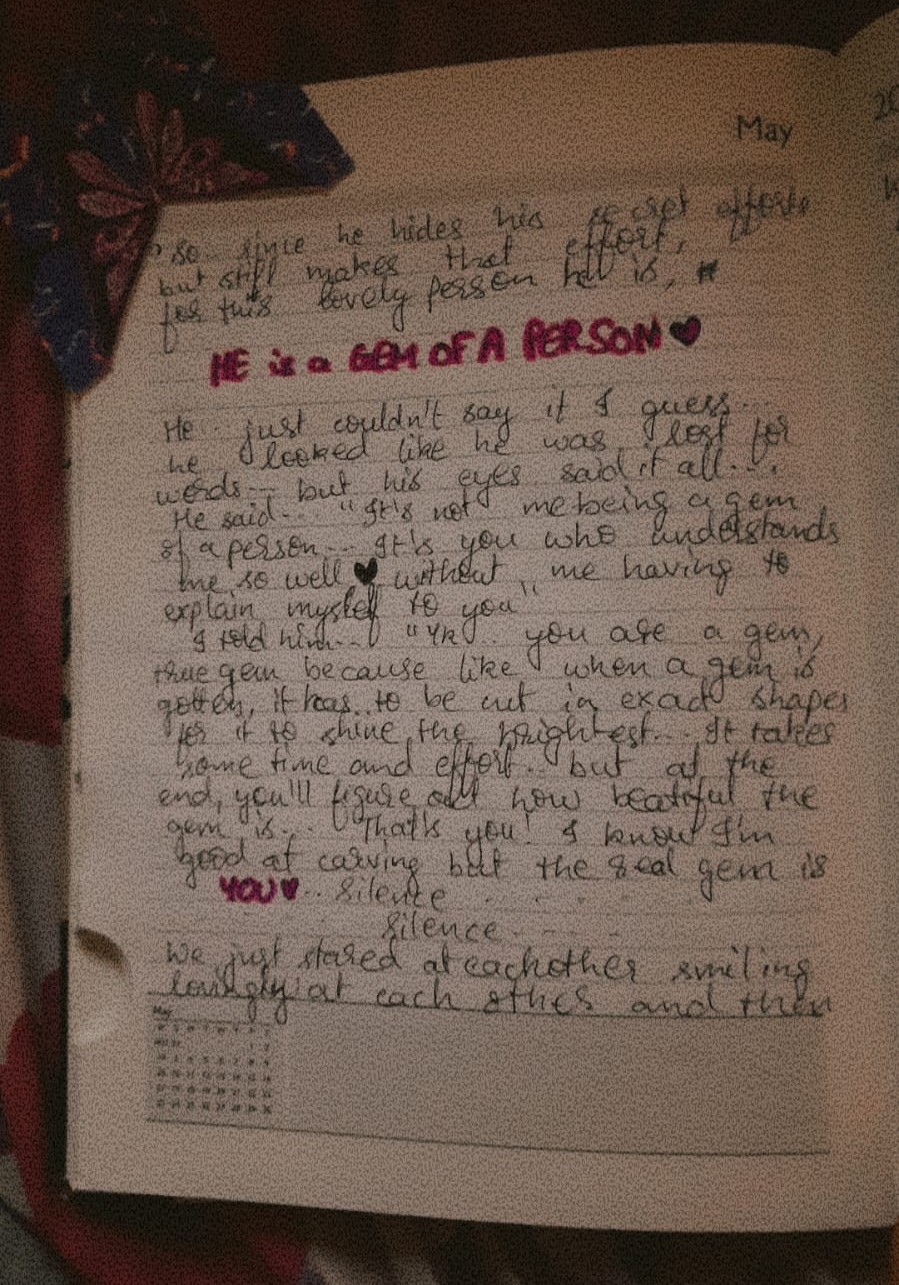 May
so since he hides his secret efforts
but still makes that effort,
for this lovely person he is,
HE is a GEM OF A PERSON♥
He just couldn't say it I guess...
he looked like he was lost for
words--, but his eyes said it all...
He said-- "It's not me being a gem
of a person--- It's you who understands
me so well ♥ without me having to
explain myself to you"
I told him--- "Yk.. you are a gem,
true gem because like when a gem is
gotten, it has to be cut in exact shapes
for it to shine the brightest... It takes
some time and effort.. but at the
end, you'll figure out how beatiful the
gem is... That's you! I know I'm
good at carving but the real gem is
YOU♥.. Silence
Silence
We just stared at eachother smiling
lovingly at each other and then
May